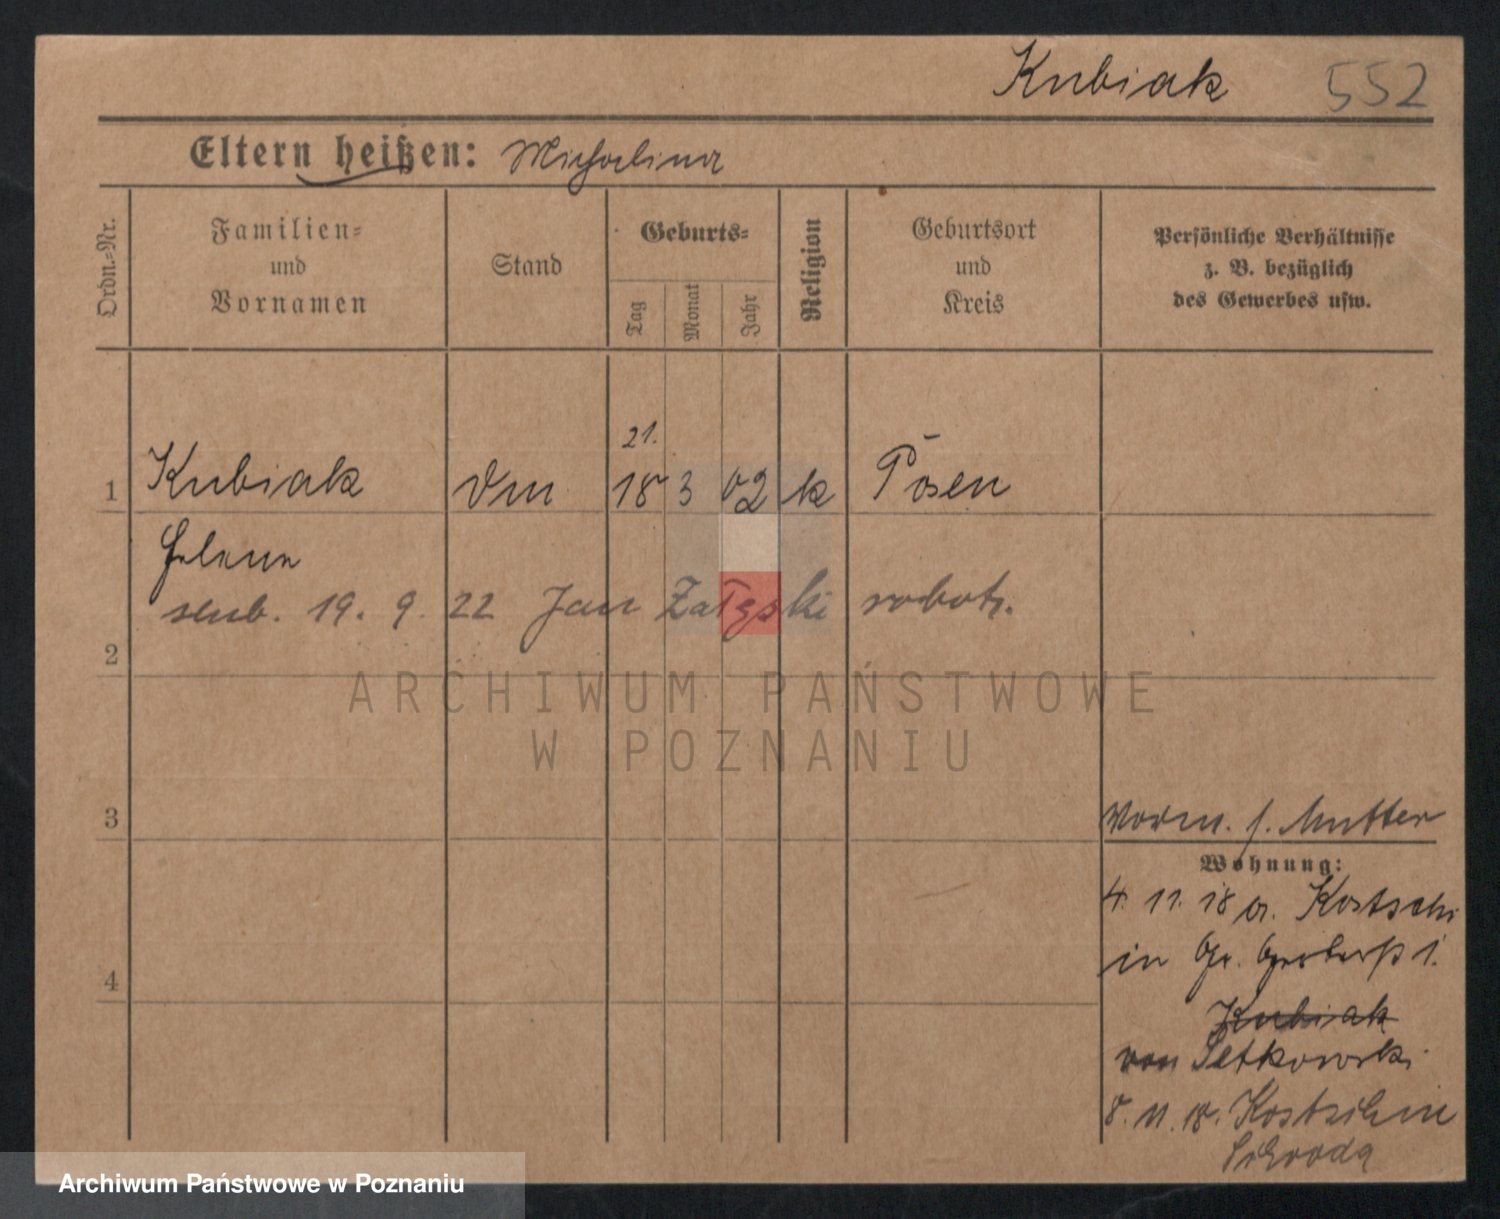 Kubiak 552
Eltern heißen: Michalina
Ordn.-Nr.
Familien-
und
Vornamen
Stand
Geburts-
Tag
Monat
Jahr
Religion
Geburtsort
und
Kreis
Persönliche Verhältnisse
z. B. bezüglich
des Gewerbes usw.
21.
1 Kubiak 18 3 02 k Posen
Helene
slub. 19. 9. 22 Jan Załyski robotn.
2
ARCHIWUM PAŃSTWOWE
W POZNANIU
3
Vorm. s. Mutter
Wohnung:
4. 11. 18 a. Kostschin
in Gr. 1.
4
Kubiak
von Petkowski
8. 11. 18. Kostschin
Schroda
Archiwum Państwowe w Poznaniu